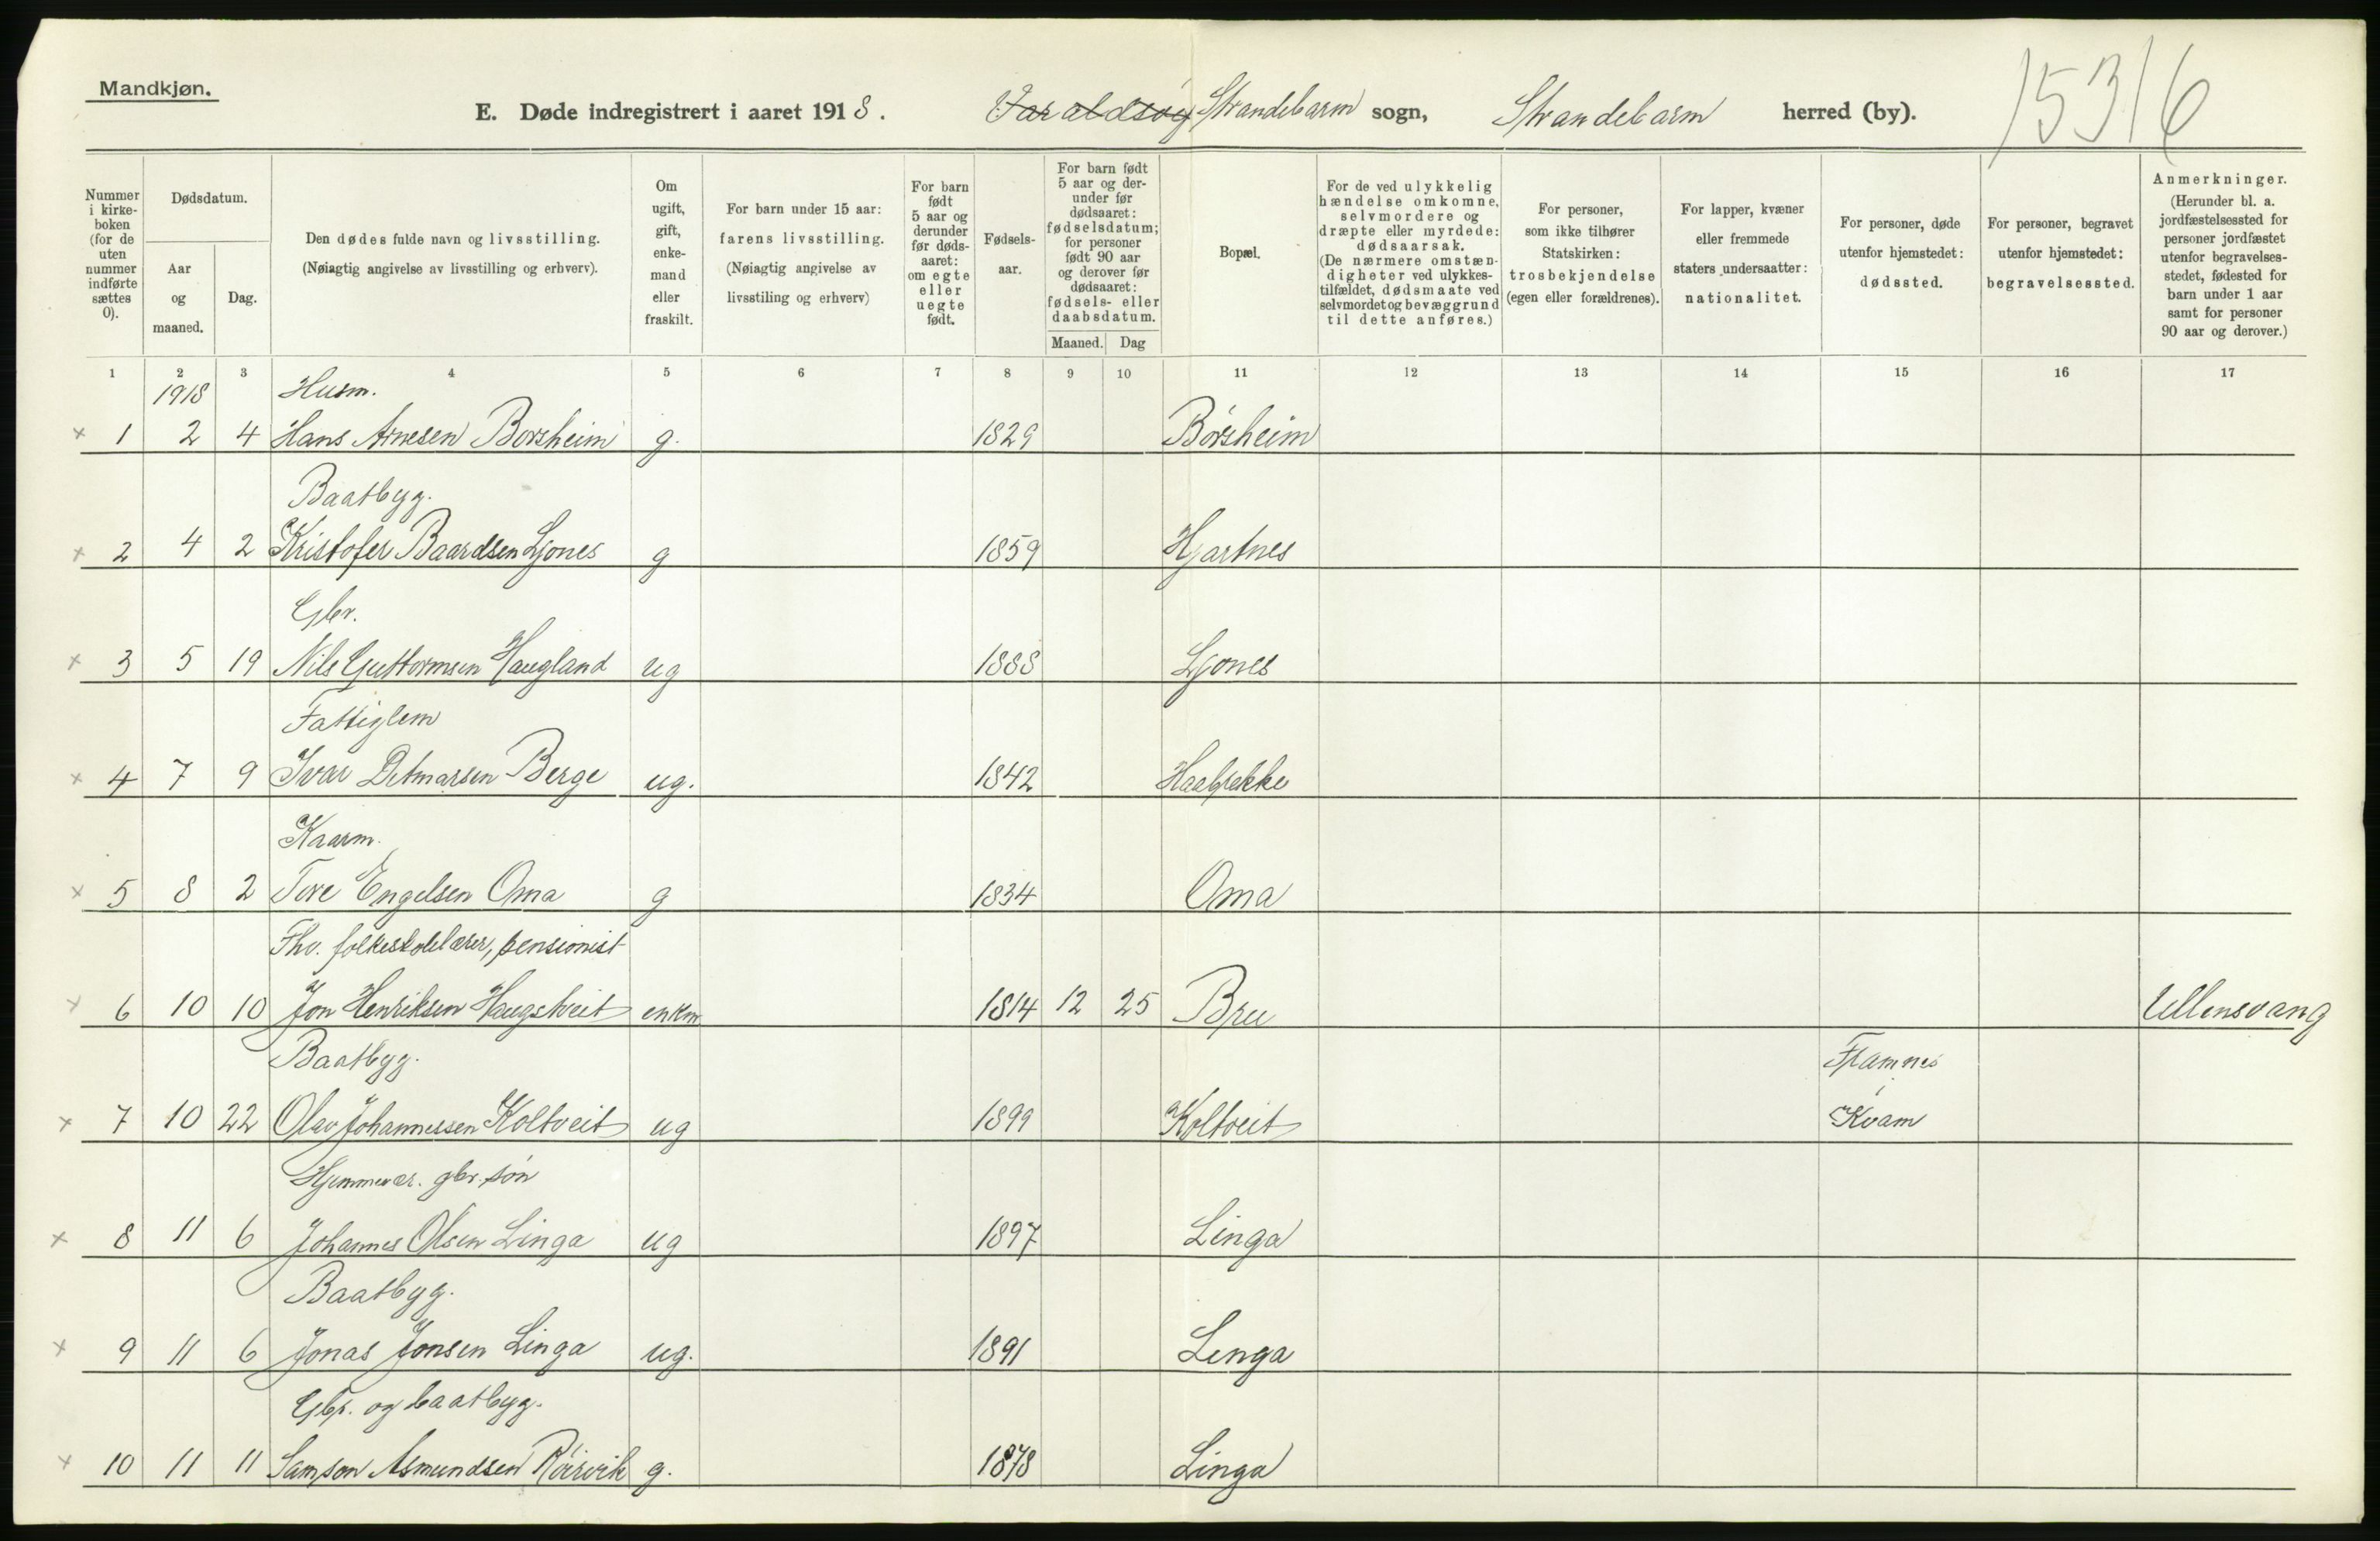 Mandkjøn.
E. Døde indregistrert i aaret 1918. Varaldsøy Strandebarm sogn, Strandebarm herred (by). 15316
Nummer i kirke-boken (for de uten nummer indførte sættes 0).
Dødsdatum.
Aar og maaned.
Dag.
Den dødes fulde navn og livsstilling.
(Nøiagtig angivelse av livsstilling og erhverv).
Om ugift, gift, enke-mand eller fraskilt.
For barn under 15 aar: farens livsstilling.
(Nøiagtig angivelse av livsstiling og erhverv)
For barn født 5 aar og derunder før døds-aaret: om egte eller uegte født.
Fødsels-aar.
For barn født 5 aar og der-under før dødsaaret: fødselsdatum; for personer født 90 aar og derover før dødsaaret: fødsels- eller daabsdatum.
Maaned. Dag
Bopæl.
For de ved ulykkelig hændelse omkomne, selvmordere og dræpte eller myrdede: dødsaarsak.
(De nærmere omstæn-digheter ved ulykkes-tilfældet, dødsmaate ved selvmordet og bevæggrund til dette anføres.)
For personer, som ikke tilhører Statskirken: trosbekjendelse (egen eller forældrenes).
For lapper, kvæner eller fremmede staters undersaatter: nationalitet.
For personer, døde utenfor hjemstedet: dødssted.
For personer, begravet utenfor hjemstedet: begravelsessted.
Anmerkninger.
(Herunder bl. a. jordfæstelsessted for personer jordfæstet utenfor begravelses-stedet, fødested for barn under 1 aar samt for personer 90 aar og derover.)
1 2 3 4 5 6 7 8 9 10 11 12 13 14 15 16 17
1918 Husm.
× 1 2 4 Hans Arnesen Borsheim g. 1829 Börsheim
Baatbyg.
× 2 4 2 Kristofer Baardsen Ljones g 1859 Hjartnes
Gbr.
× 3 5 19 Nils Guttormsen Haugland ug 1888 Ljones
Fattiglem
× 4 7 9 Ivar Detmarsen Berge ug. 1842
Kaarm.
× 5 8 2 Tore Engelsen Oma g 1834 Oma
Fhv. folkeskolelærer, pensionist
× 6 10 10 Jon Henriksen Haugstveit enkm 1814 12 25 Bru Ullensvang
Baatbyg. Framnes
× 7 10 22 Olav Johannessen Koltveit ug 1899 Koltveit Kvam
Hjemmevær. gbr. sön
× 8 11 6 Johannes Olsen Linga ug 1897 Linga
Baatbyg.
× 9 11 6 Jonas Jonsen Linga ug. 1891 Linga
Gbr. og baatbyg.
× 10 11 11 Samson Asmundsen Röirvik g. 1878 Linga